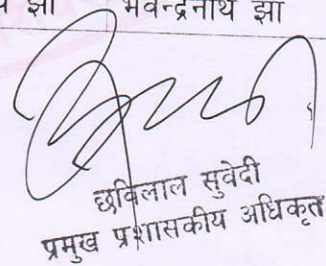 झा भवेन्द्रनाथ झा
छविलाल सुवेदी
प्रमुख प्रशासकीय अधिकृत